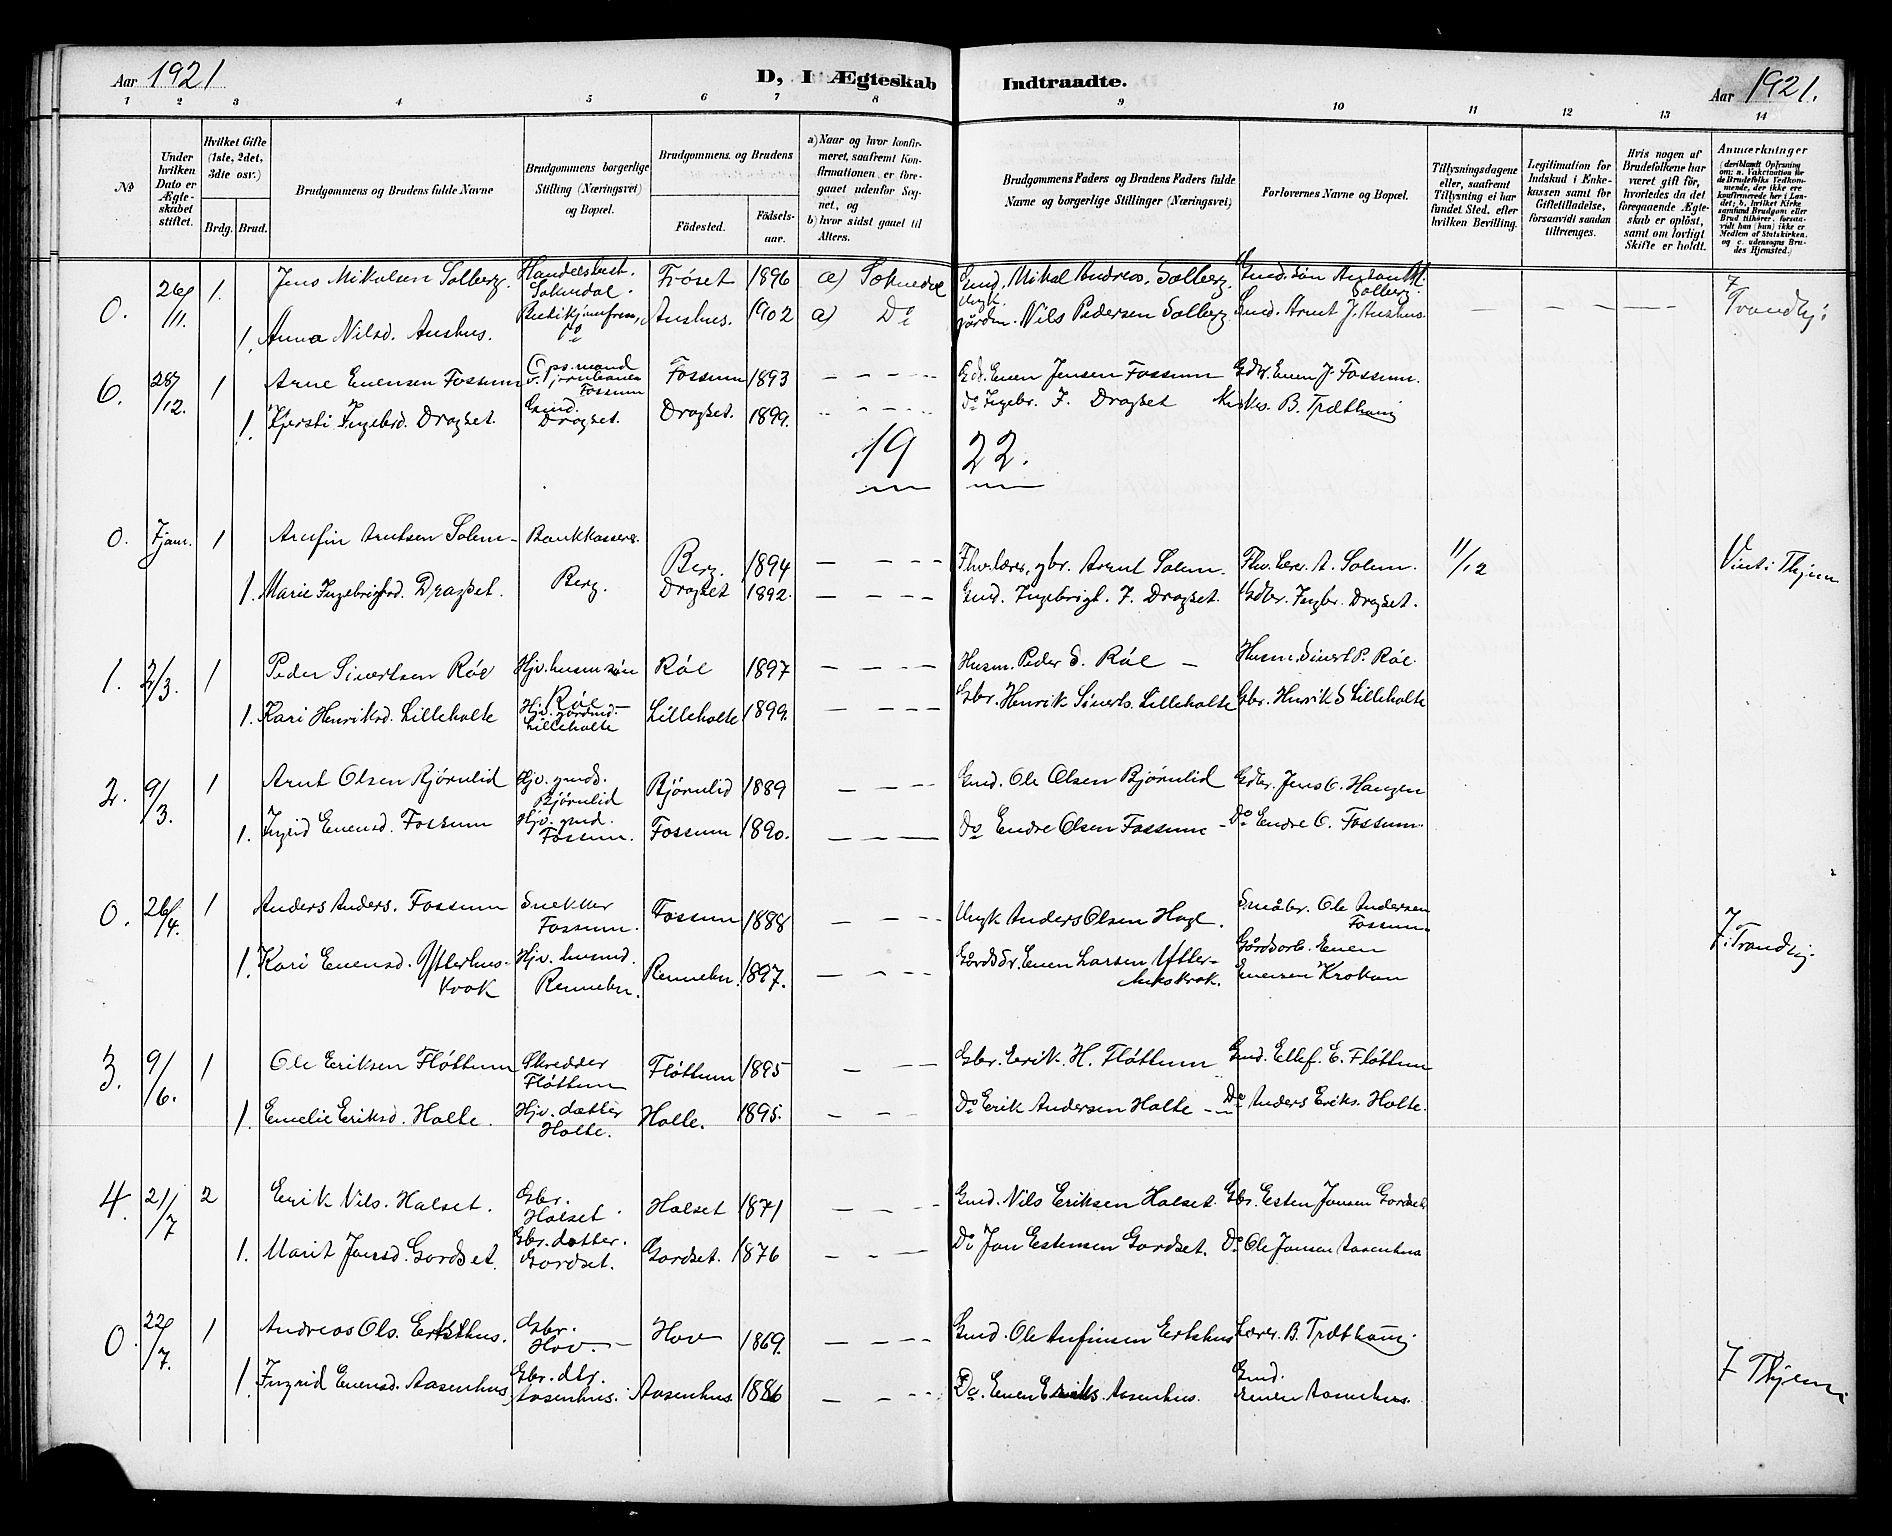 Aar 1921 D, I Ægteskab Indtraadte. Aar 1921.
1 2 3 4 5 6 7 8 9 10 11 12 13 14
№
Under hvilken Dato er Ægteskabet stiftet.
Hvilket Gifte (1ste, 2det, 3die osv.)
Brdg. Brud.
Brudgommens og Brudens fulde Navne
Brudgommens borgerlige Stilling (Næringsvei) og Bopæl.
Brudgommens og Brudens
Fødested. Fødselsaar.
a) Naar og hvor konfirmeret, saafremt Konfirmationen er foregaaet udenfor Sognet, og
b) hvor sidst gaaet til Alters.
Brudgommens Faders og Brudens Faders fulde Navne og borgerlige Stillinger (Næringsvei)
Forlovernes Navne og Bopæl.
Tillysningsdagene eller, saafremt Tillysning ei har fundet Sted, efter hvilken Bevilling.
Legitimation for Indskud i Enkekassen samt for Giftetilladelse, forsaavidt saadan tiltrænges.
Hvis nogen af Brudefolkene har været gift før, hvorledes da det foregaaende Ægteskab er opløst, samt om lovligt Skifte er holdt.
Anmærkninger
(deriblandt Oplysning om: a. Vaktination for de Brudefolks Vedkommende, der ikke ere konfirmerede her i Landet; b. hvilket Kirkesamfund Brudgom eller Brud tilhører, forsaavidt han (hun) ikke er Medlem af Statskirken, og c. udensogns Brudes Hjemsted.)
0. 26/11. 1. Jens Mikalsen Solberg. Handelsbest. Soknedal. Frøset 1896 a) Soknedal Gmd. Mikal Andreas. Solberg. Gmd. søn Anton M. Solberg.
1. Anna Nilsd. Aashus. Butikjomfru, do Aashus. 1902 a) Do Ungk. gårdm. Nils Pedersen Solberg. Gmd. Arnt J. Aashus. — — — — 7 Trondhj.
6. 28/12. 1 Arne Evensen Fossum Opsmand v. Jernbanen Fossum Fossum 1893 — — — — Gbr. Even Jensen Fossum Gdbr. Even J. Fossum.
1. Kjersti Ingebrd. Dragset. Gmd. Dragset. Dragset. 1899. — — — — do Ingebr. J. Dragset Kirkes. B. Trøthaug
19 22.
0. 7 jan. 1 Arnfin Arntsen Solem Bankkasserer Berg. 1894 — — — — Fhv. lærer, gbr. Arnt Solem. Fhv. lær. A. Solem. 11/12 Viet i Thjem
1. Marie Ingebrigtsd. Dragset. Berg. Dragset 1892. — — — — Gmd. Ingebrigt. J. Dragset. Gdbr. Ingbr. Dragset.
1. 2/3. 1 Peder Sivertsen Røe Hjv. husm. søn Røe Røe 1897 — — — — Husm. Peder S. Røe — Husm. Sivert P. Røe.
1. Kari Henriksd. Lilleholte Hjv. gårdmd. Lilleholte Lilleholte 1899. — — — — Gbr. Henrik Siverts. Lilleholte Gbr. Henrik S Lilleholte
2. 9/3. 1 Arnt Olsen Bjørnlid Hjv. gmds. Bjørnlid Bjørnlid 1889 — — — — Gmd. Ole Olsen Bjørnlid Gdbr. Jens O. Haugen
1. Ingrid Evensd. Fossum Hjv. gmd. Fossum. Fossum 1890. — — — Do Endre Olsen Fossum — Do Endre O. Fossum.
0. 26/4. 1 Anders Anders. Fossum Snekker Fossum. Fossum 1888 — — — — Ungk Anders Olsen Hagl. Småbr. Ole Andersen Fossum.
1. Kari Evensd. Ytterhus-Krok Hjv. husmd. Rennebu. Rennebu. 1897. — — — — Gårdbr. Even Larsen Ytterhuskrok. Gårdsarb. Even Evensen Krokan 7. Trondhj.
3. 9/6. 1 Ole Eriksen Fløttum Skredder Fløttum Fløttum 1895 — — — — Gbr. Erik. H. Fløttum Gmd. Ellef. E. Fløttum
1. Emelie Eriksd. Holte. Hjv. datter Holte. Holte. 1895. — — — — Do Erik Andersen Holte — Do Anders Eriks. Holte.
4. 21/7 2 Erik Nils. Halset. Gbr. Halset Halset 1871 — — — — Gmd. Nils Eriksen Halset. Gbr. Esten Jonsen Gordset
1. Marit Jonsd. Gordset. Gbr. datter. Gordset. Gordset. 1876 — — — Do Jon Estensen Gordset. Do Ole Jonsen Aasenhus
0. 22/7. 1 Andreas Ols. Ertshus. Gbr. Hov. — Hov 1869. — — — — Gmd. Ole Anfinsen Ertshus Lærer. B. Trøthaug
1. Ingrid Evensd. Aasenhus Gbr. dtr. Aasenhus. Aasenhus 1886 — — — — Do. Even Eriks. Aasenhus. Gmd. Even Aasenhus. 7 Thjem.